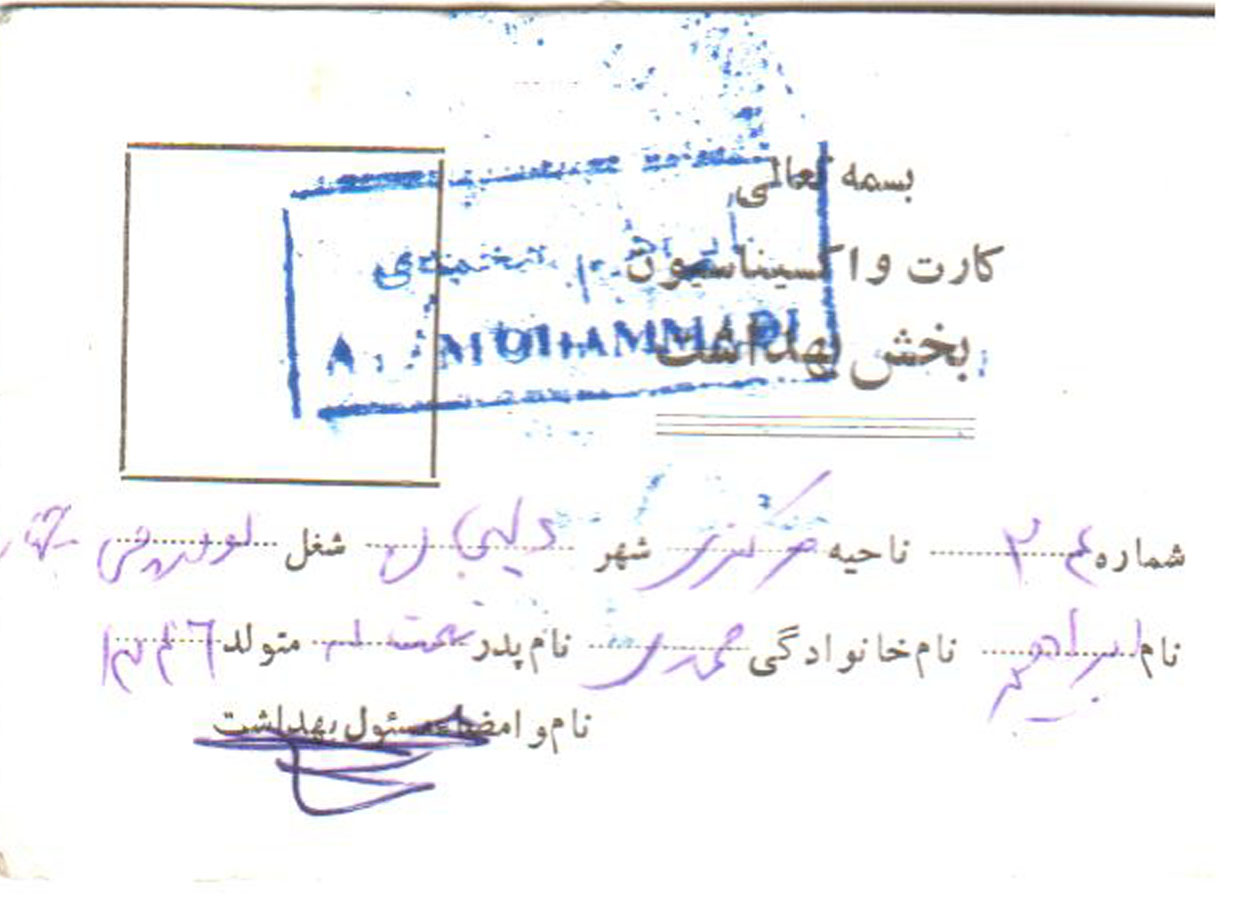 بسمه تعالی
کارت واکسیناسیون
بخش بهداشت
A. MOHAMMADI
شماره ناحیه مرکزی شهر دلیجان شغل
نام ابراهیم نام خانوادگی محمدی نام پدر متولد ۱۳۴۶
نام و امضاء مسئول بهداشت